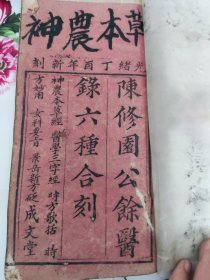 神農本草
光緒丁酉年新刻
陳修園公餘醫
錄六種合刻
神農本草經 醫學三字經 時方歌括 時
方妙用 女科要旨 景岳新方砭 成文堂